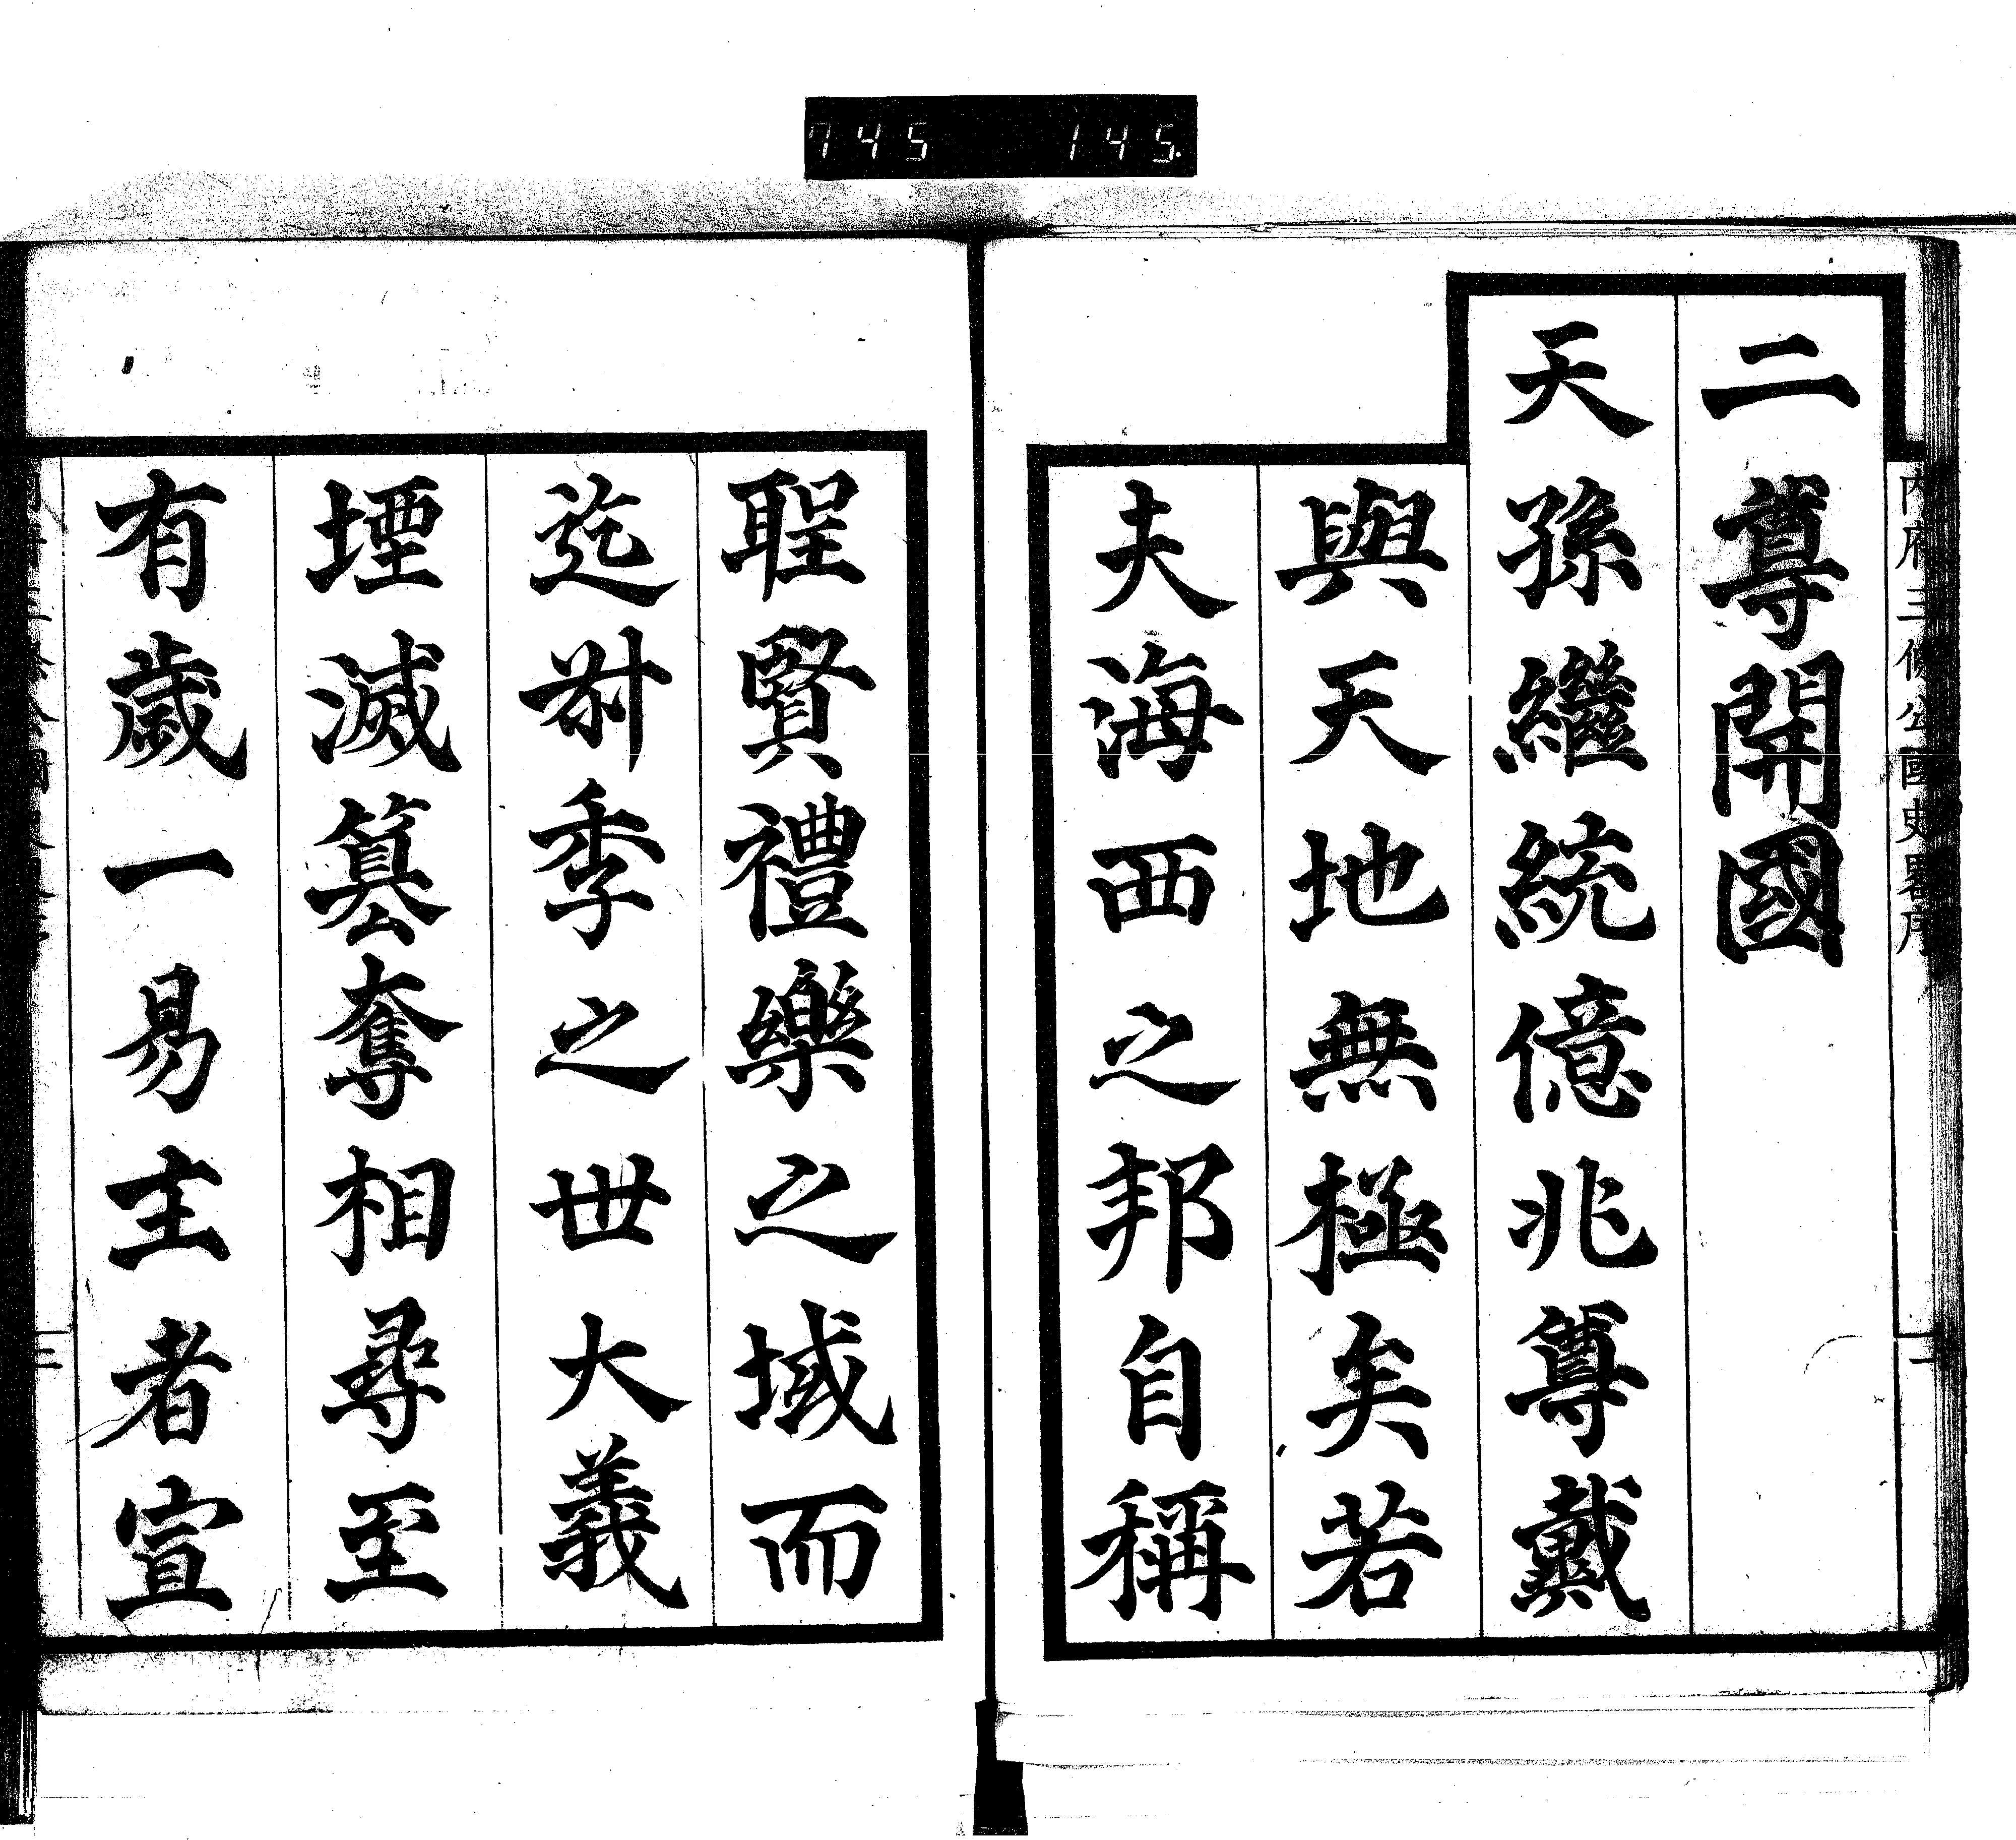 745 145
內府三條公國史畧序
二尊開國
天孫繼統億兆尊戴
與天地無極矣若
夫海西之邦自稱
聖賢禮樂之域而
迄叔季之世大義
堙滅篡奪相尋至
有歲一易主者宣